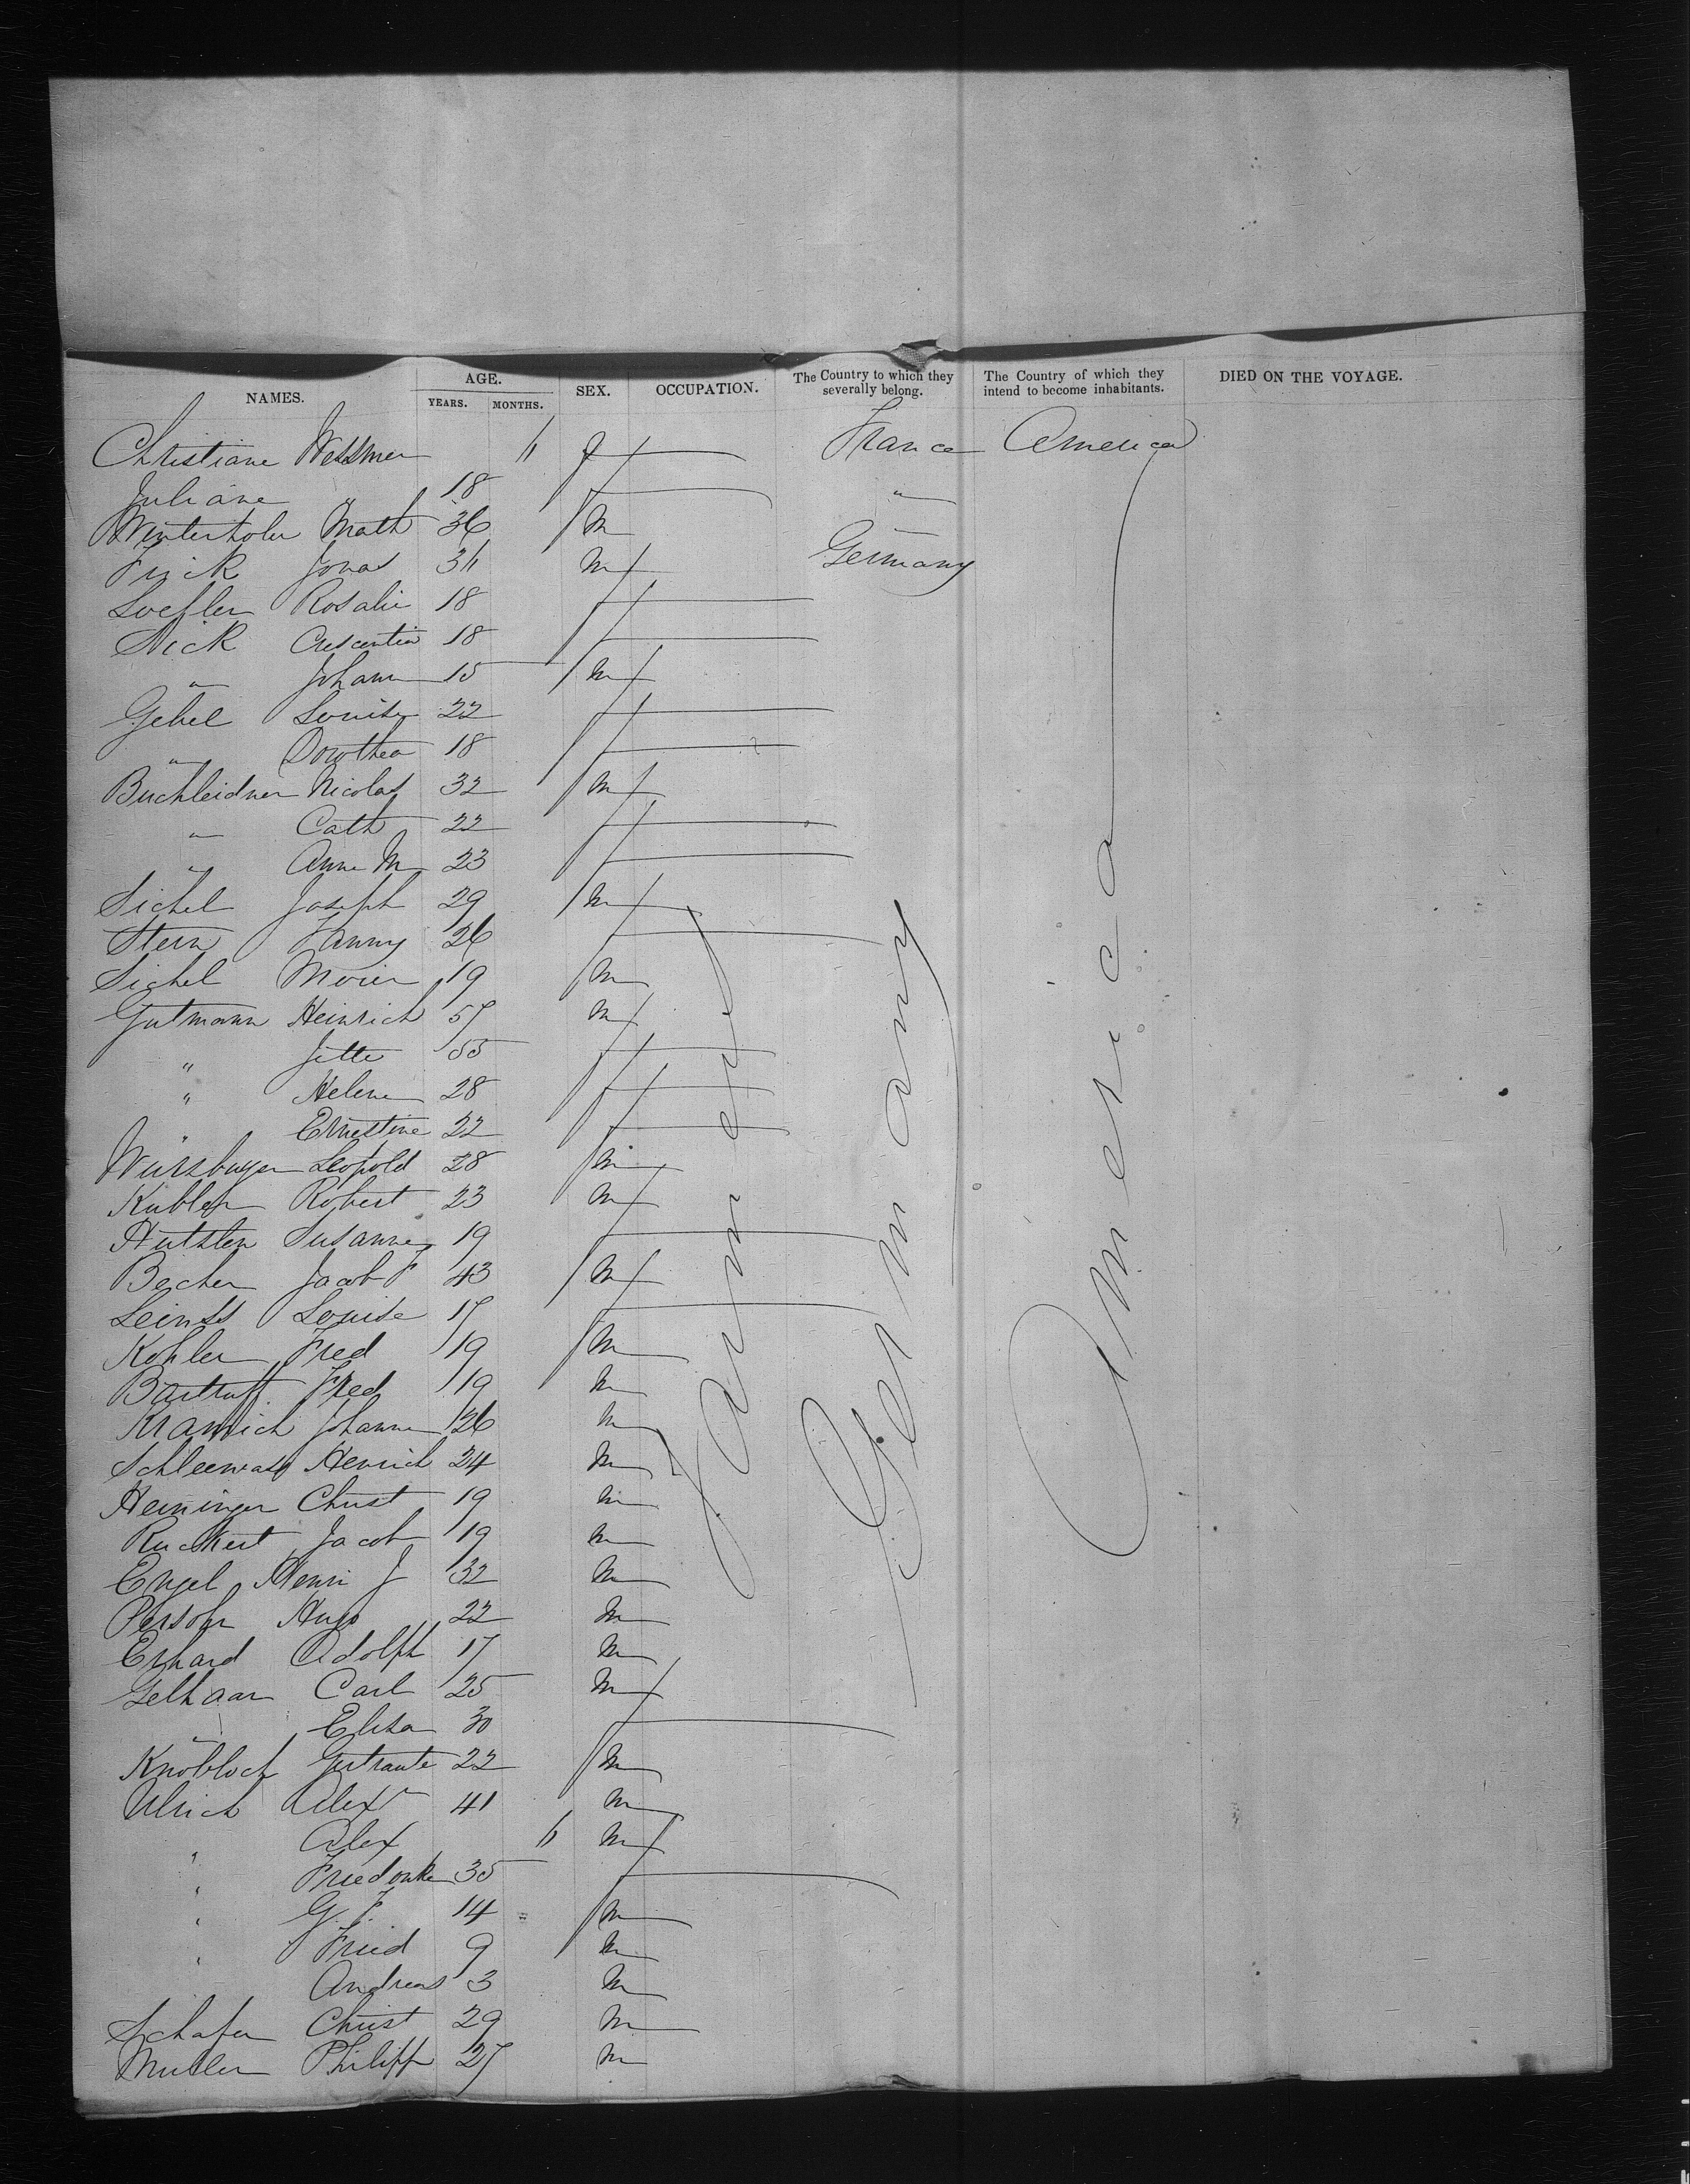 NAMES. AGE. YEARS. MONTHS. SEX. OCCUPATION. The Country to which they severally belong. The Country of which they intend to become inhabitants. DIED ON THE VOYAGE.
Christiane Wessmer 11 f France America
Juliane " 18 f "
Winterholer Math 36 m
Frick Jonas 31 m Germany
Loefler Rosalie 18 f
Sick Crescentia 18 f
" Johann 15 m
Gebel Louise 22 f
" Dorothea 18 f
Buchleidner Nicolas 32 m
" Cath 22 f
" Anna M 23 f
Sichel Joseph 29 m
Stern Fanny 26 f
Sichel Meier 19 m
Gutmann Heinrich 57 m
" Jette 55 f
" Helene 28 f
" Ernestine 22 f
Wurzburger Leopold 28 m
Kubler Robert 23 m
Susanne 19 f
Becher Jacob F 43 m
Leinss Louise 17 f
Kohler Fred 19 m
Bartruff Fred 19 m
Krannich Johann 26 m
Heinrich 24 m
Heininger Christ 19 m
Ruckert Jacob 19 m
Engel Henri J 32 m
Persohn Hugo 22 m
Erhard Adolph 17 m
Gelhaar Carl 25 m
" Elisa 30 f
Knobloch Gertraute 22 m
Ulrich Alexr 41 m
" Alex 6 m
" Friedericke 35 f
" G. F. 14 m
" Fried 9 m
Andreas 3 m
Schafer Christ 29 m
Muller Philipp 27 m
farmers
Germany
America